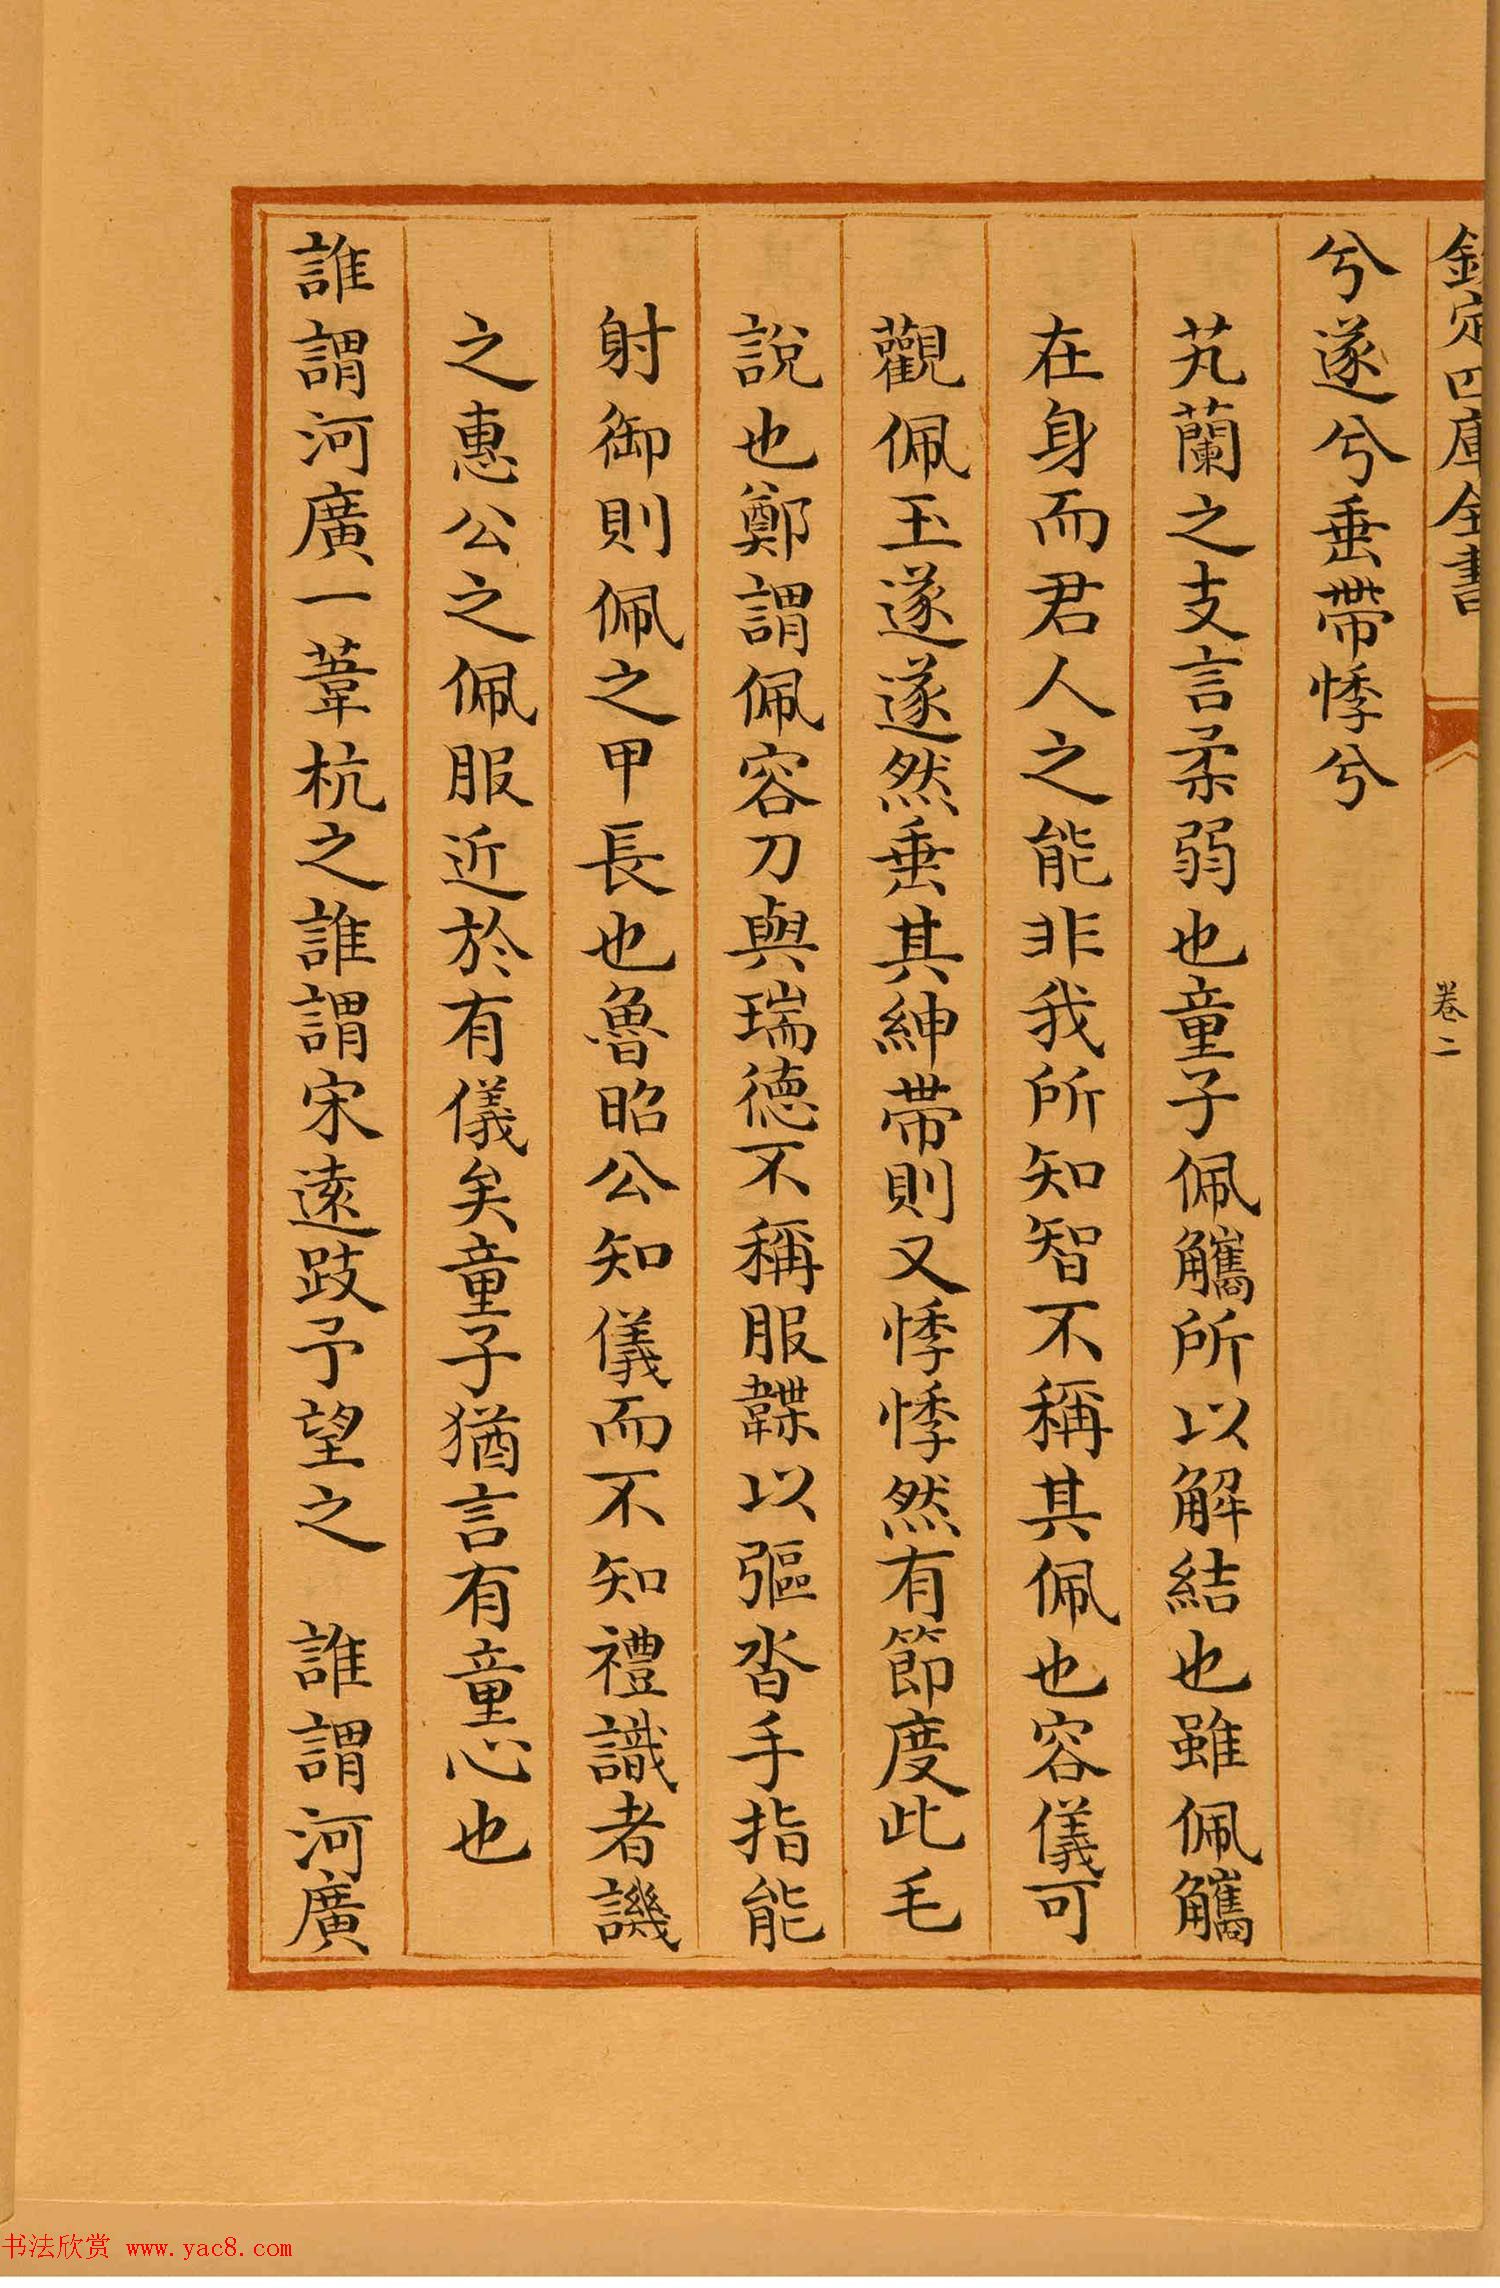 欽定四庫全書 卷二
兮遂兮垂帶悸兮
芄蘭之支言柔弱也童子佩觿所以解結也雖佩觿
在身而君人之能非我所知智不稱其佩也容儀可
觀佩玉遂遂然垂其紳帶則又悸悸然有節度此毛
說也鄭謂佩容刀與瑞德不稱服韘以彄沓手指能
射御則佩之甲長也魯昭公知儀而不知禮識者譏
之惠公之佩服近於有儀矣童子猶言有童心也
誰謂河廣一葦杭之誰謂宋遠跂予望之 誰謂河廣
书法欣赏 www.yac8.com